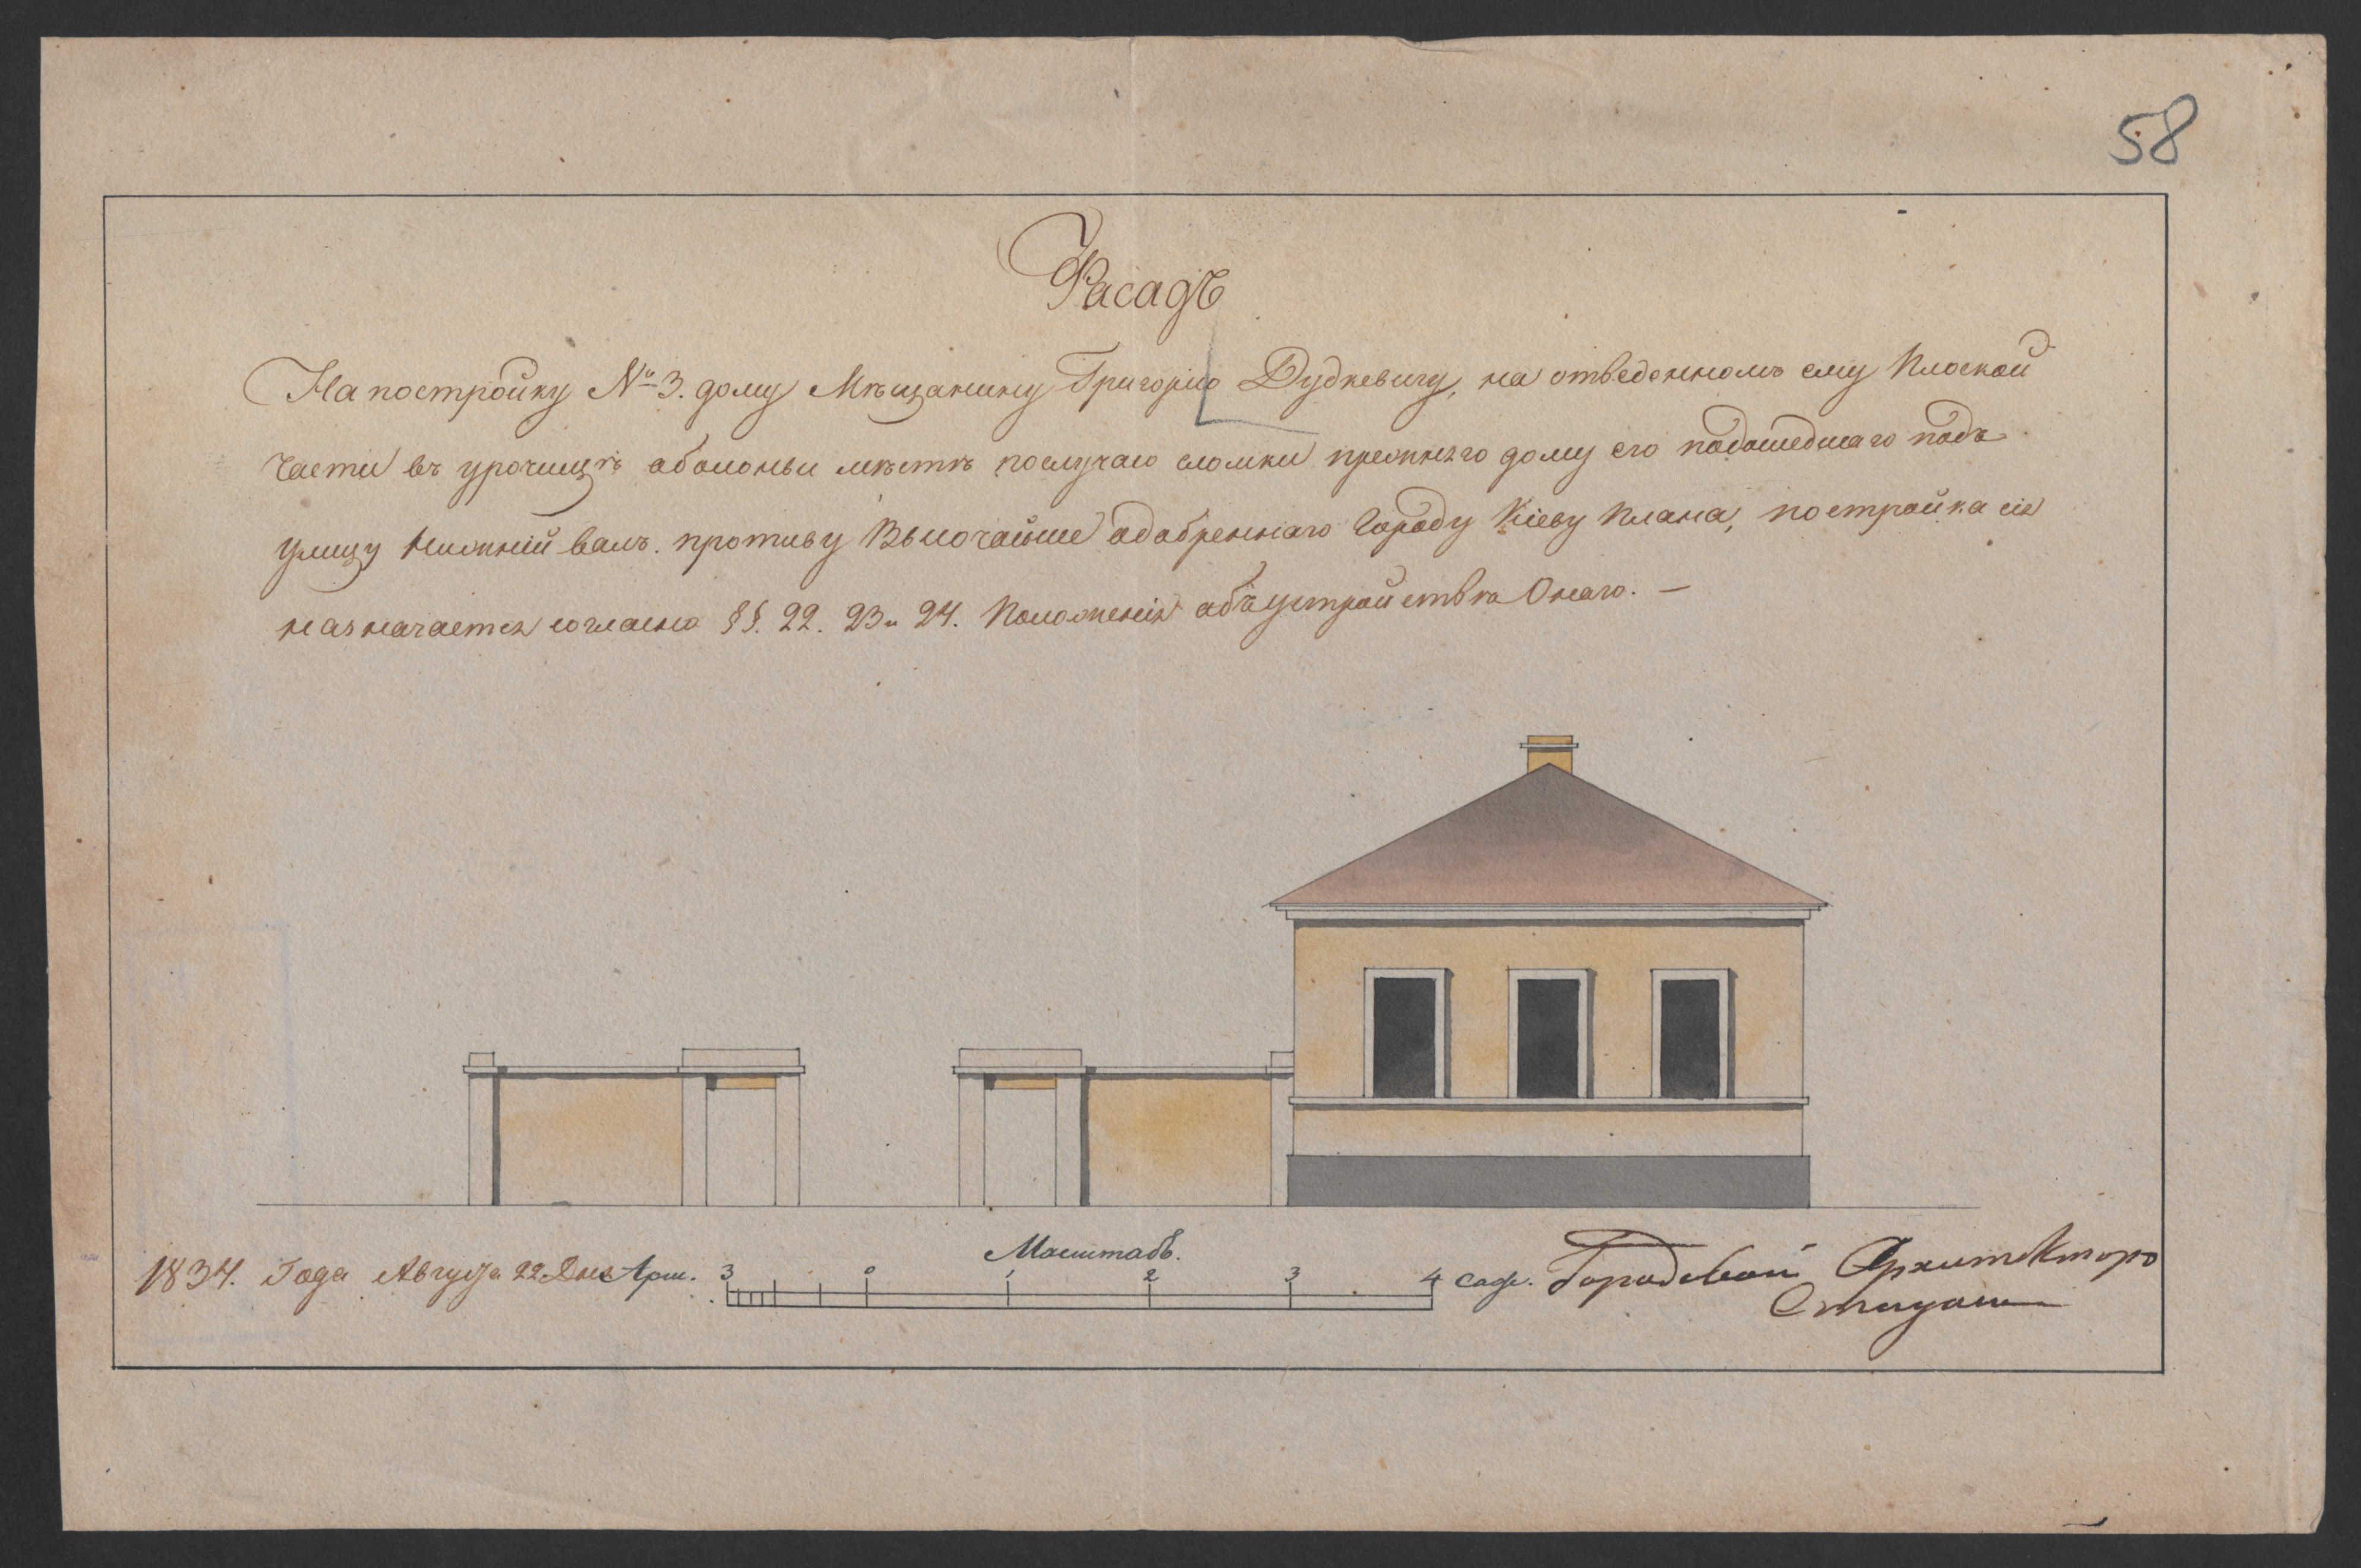 58
Фасадъ
На постройку № 3. дому Мѣщанину Григорию Дудкевичу, на отведенномъ ему Плоской
части въ урочищѣ оболоньи мѣстѣ послучаю сломки прежняго дому его подошедшаго подъ
улицу Нижній валъ. противу Высочайше одобреннаго Городу Кіеву Плана, постройка сія
назначается согласно §§. 22. 23 и 24. Положенія объ устройствѣ Онаго. —
Масштабъ.
1834. Года Августа 22 Дня Арш. 3 0 1 2 3 4 саж. Городовой Архитекторъ